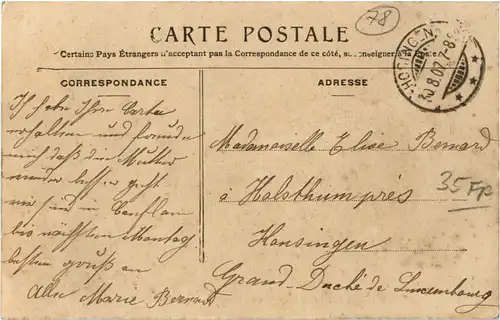 78
CARTE POSTALE
Certains Pays Étrangers n'acceptant pas la Correspondance de ce côté, se renseigner à la
CORRESPONDANCE
Ich habe Ihre Karte
erhalten und
mich daß der Mutter
wieder besser geht
wir sind in
bis nächsten Montag
besten gruß an
Alle Marie Bernard
HOTTINGEN
20.8.07.7-8
ADRESSE
Mademoiselle Elise Bernard
à Holsthum près
Honsingen
Grand-Duché de Luxembourg
35 FP